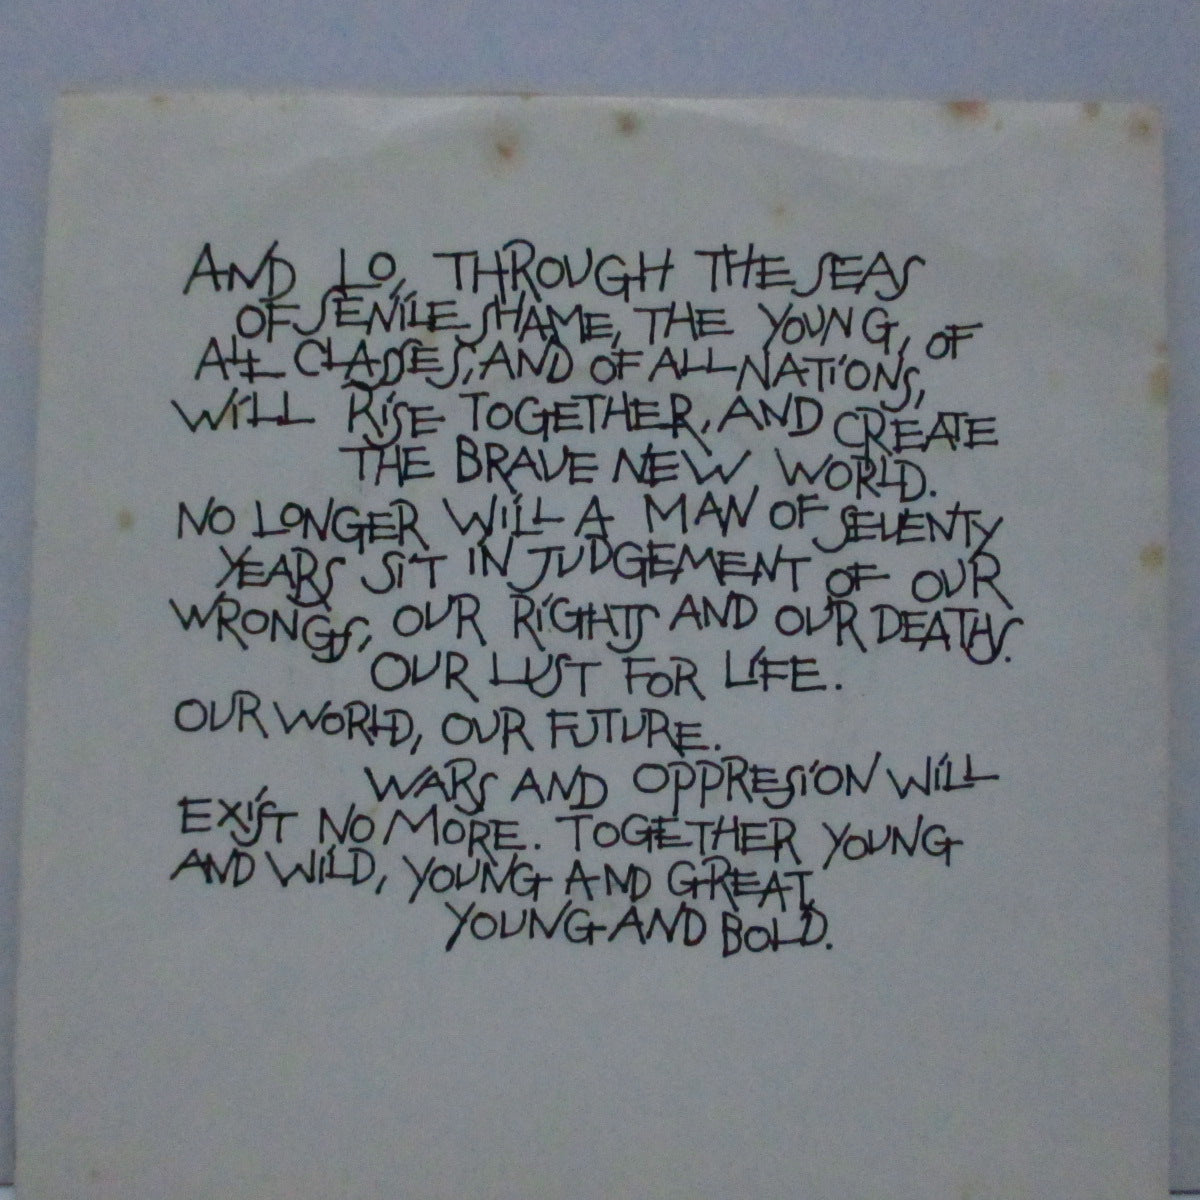 AND LO, THROUGH THE SEAS
OF SENILE SHAME, THE YOUNG, OF
ALL CLASSES, AND OF ALL NATIONS,
WILL RISE TOGETHER, AND CREATE
THE BRAVE NEW WORLD.
NO LONGER WILL A MAN OF SEVENTY
YEARS SIT IN JUDGEMENT OF OUR
WRONGS, OUR RIGHTS AND OUR DEATHS.
OUR LUST FOR LIFE.
OUR WORLD, OUR FUTURE.
WARS AND OPPRESION WILL
EXIST NO MORE. TOGETHER YOUNG
AND WILD, YOUNG AND GREAT,
YOUNG AND BOLD.